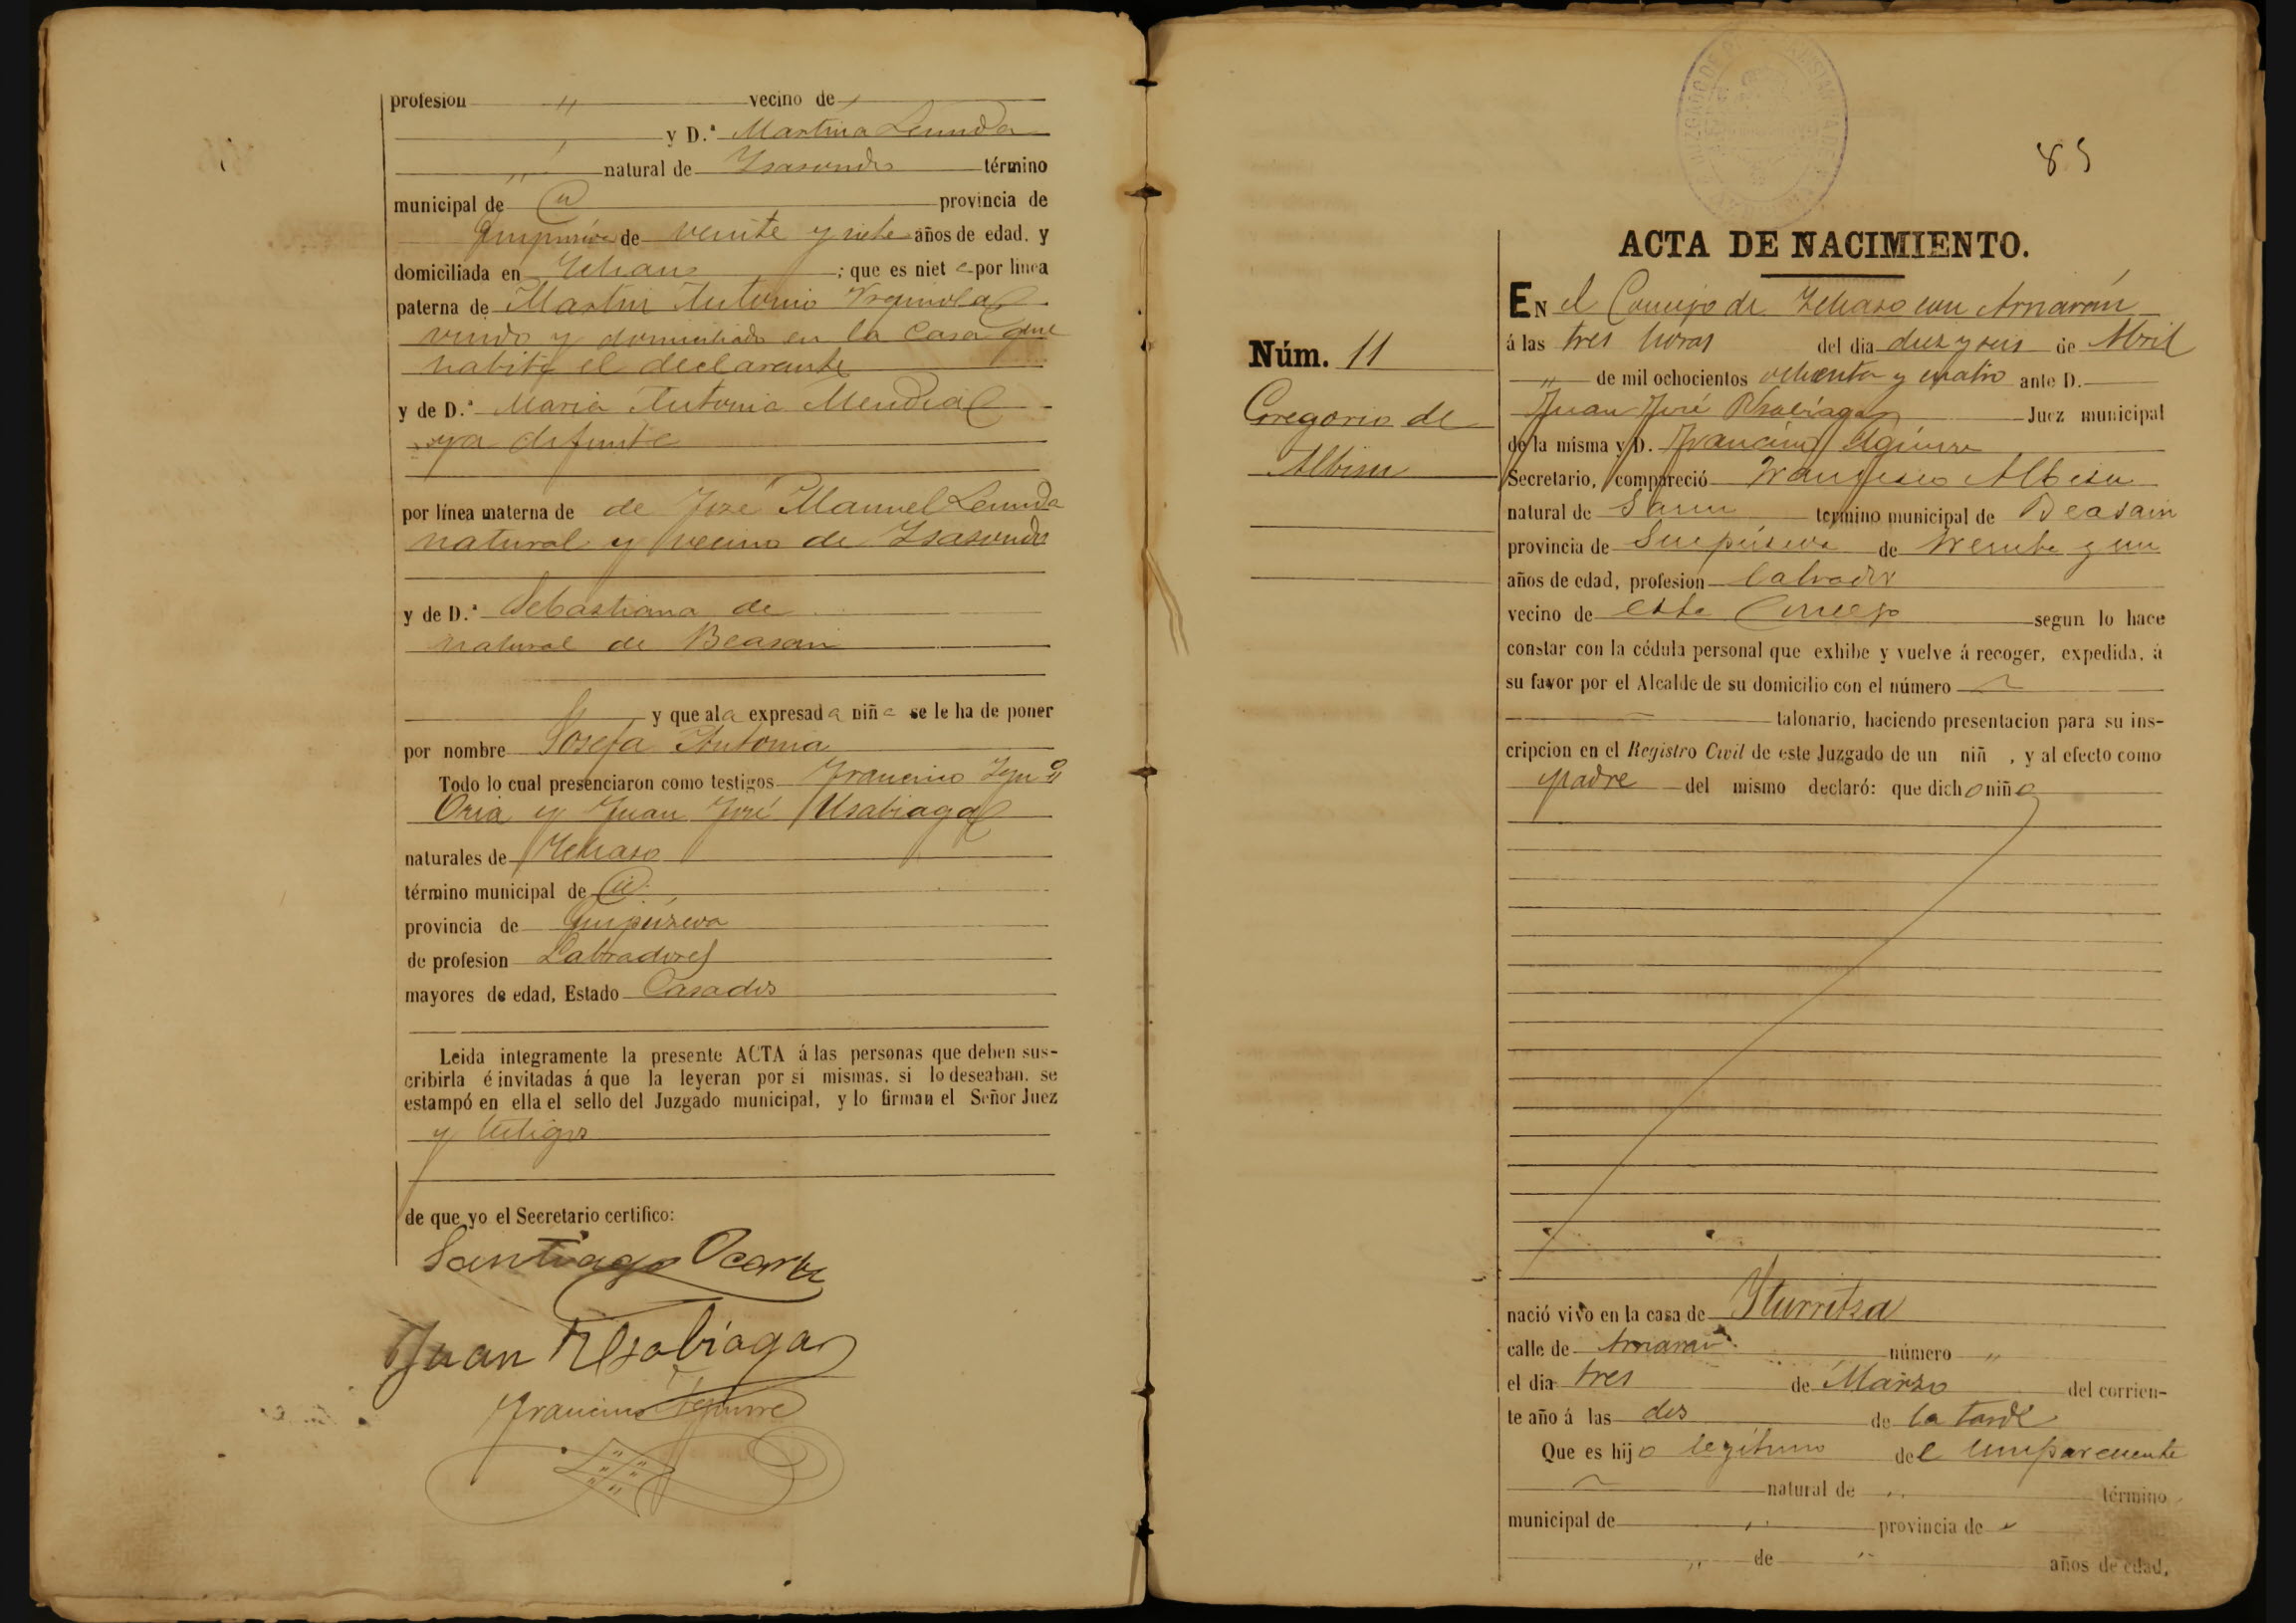 profesion " vecino de
y D.ª Martina Lasunda
" natural de Ysasondo término
municipal de id provincia de
Guipúzcoa de veinte y siete años de edad. y
domiciliada en Ychaso ; que es niet a por linea
paterna de Martin Antonio
viudo y domiciliado en la casa que
habita el declarante
y de D.ª Maria Antonia Mendia
ya difunta
por línea materna de de José Manuel
natural y vecino de Ysasondo
y de D.ª Sebastiana de
natural de Beasain
y que al a expresad a niñ a se le ha de poner
por nombre Josefa Antonia
Todo lo cual presenciaron como testigos Francisco Ygnº
Oria y Juan José Usabiaga
naturales de Ychaso
término municipal de id.
provincia de Guipúzcoa
de profesion Labradores
mayores de edad, Estado Casados
Leida integramente la presente ACTA á las personas que deben sus-
cribirla é invitadas á que la leyeran por si mismas, si lo deseaban, se
estampó en ella el sello del Juzgado municipal, y lo firman el Señor Juez
y testigos
de que yo el Secretario certifico:
Santiago
Juan Usabiaga
Francisco Aguirre
85
ACTA DE NACIMIENTO.
Núm. 11
Gregorio de
Albisu
EN el Concejo de Ychaso con Arriarán
á las tres horas del dia diez y seis de Abril
" de mil ochocientos ochenta y cuatro ante D.
Juan José Usabiaga Juez municipal
de la misma y D. Francisco Aguirre
Secretario, compareció Francisco Albisu
natural de termino municipal de Beasain
provincia de Guipúzcoa de treinta y un
años de edad, profesion labrador
vecino de este Concejo segun lo hace
constar con la cédula personal que exhibe y vuelve á recoger, expedida, á
su favor por el Alcalde de su domicilio con el número
talonario, haciendo presentacion para su ins-
cripcion en el Registro Civil de este Juzgado de un niñ , y al efecto como
padre del mismo declaró: que dich o niñ o
nació vivo en la casa de Yturritza
calle de Arriaran número "
el dia tres de Marzo del corrien-
te año á las dos de la tarde
Que es hij o legítimo de l compareciente
natural de " término
municipal de " provincia de "
" de " años de edad,